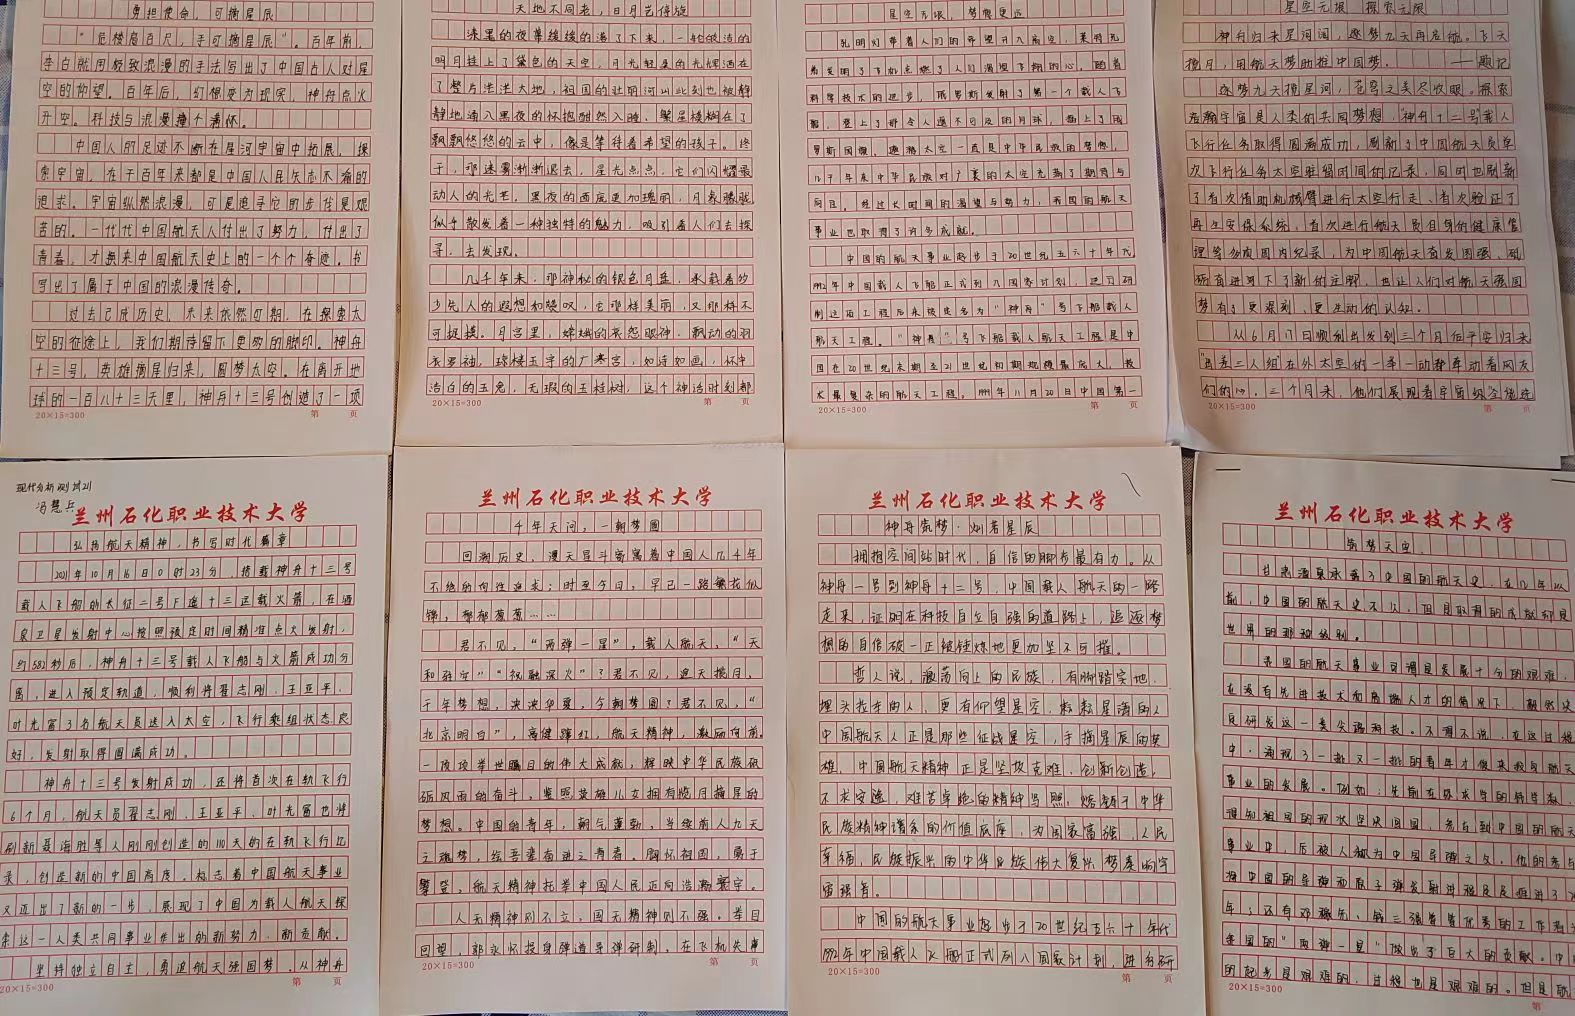 勇担使命，可摘星辰
"危楼高百尺，手可摘星辰"。百年前，
李白就用极致浪漫的手法写出了中国古人对星
空的仰望。百年后，幻想变为现实，神舟点火
升空。科技与浪漫撞个满怀。
中国人的足迹不断在星河宇宙中拓展，探
索宇宙，在千百年来都是中国人民矢志不渝的
追求。宇宙纵然浪漫，可是追寻它的步伐是艰
苦的。一代代中国航天人付出了努力，付出了
青春，才换来中国航天史上的一个个奇迹。书
写出了属于中国的浪漫传奇。
过去已成历史，未来依然可期，在探索太
空的征途上，我们期待留下更多的脚印。神舟
十三号，英雄摘星归来，圆梦太空。在离开地
球的一百八十三天里，神舟十三号创造了一项
20×15=300 第 页
天地不同老，日月岂停旋
漆黑的夜幕缓缓的落了下来，一轮皎洁的
明月挂上了黛色的天空，月光轻柔的光辉洒在
了整片茫茫大地，祖国的壮丽河山此刻也被静
静地涌入黑夜的怀抱酣然入睡。繁星模糊在了
飘飘悠悠的云中，像是等待着希望的孩子。终
于，那迷雾渐渐退去，星光点点，它们闪耀最
动人的光芒，黑夜的画底更加瑰丽，月色朦胧，
似乎散发着一种独特的魅力，吸引着人们去探
寻，去发现。
几千年来，那神秘的银色月盘，承载着多
少先人的遐想和喟叹，它那样美丽，又那样不
可捉摸。月宫里，嫦娥的哀怨眼神，飘动的羽
衣罗袖，琼楼玉宇的广寒宫，如诗如画，怀中
洁白的玉兔，无瑕的玉桂树，这个神话时刻都
20×15=300 第 页
星空无垠，梦想更远
孔明灯带着人们的希望升入高空，莱特兄
弟发明了飞机点燃了人们渴望飞翔的心，随着
科学技术的进步，俄罗斯发射了第一个载人飞
船，登上了那令人遥不可及的月球，插上了俄
罗斯国旗。遨游太空一直是中华民族的梦想，
几千年来中华民族对广袤的太空充满了期待与
向往。经过长时间的渴望与努力，我国的航天
事业也取得了许多成就。
中国的航天事业起步于20世纪五六十年代
1992年中国载人飞船正式列入国家计划，进行研
制这项工程后来被定名为"神舟"号飞船载人
航天工程。"神舟"号飞船载人航天工程是中
国在20世纪末期至21世纪初期规模最庞大，技
术最复杂的航天工程。1999年11月20日中国第一
20×15=300 第 页
星空无限 探索无限
神舟归来星河阔，逐梦九天再启航。飞天
揽月，用航天梦助推中国梦。 ——题记
逐梦九天揽星河，苍穹之美尽收眼。探索
浩瀚宇宙是人类的共同梦想，"神舟十二号"载人
飞行任务取得圆满成功，刷新了中国航天员单
次飞行任务太空驻留时间的记录，同时也刷新
了首次借助机械臂进行太空行走、首次验证了
再生生保系统、首次进行航天员自身的健康管
理等多项国内纪录，为中国航天奋发图强、砥
砺奋进写下了新的注脚，也让人们对航天强国
梦有了更深刻、更生动的认知。
从6月17日顺利出发到三个月后平安归来
"出差三人组"在外太空的一举一动都牵动着网友
们的心。三个月来，他们展现着宇宙级
20×15=300 第 页
现代分析测试211
冯慧兵
兰州石化职业技术大学
弘扬航天精神，书写时代篇章
2021年10月16日0时23分，搭载神舟十三号
载人飞船的长征二号F遥十三运载火箭，在酒
泉卫星发射中心按照预定时间精准点火发射，
约582秒后，神舟十三号载人飞船与火箭成功分
离，进入预定轨道，顺利将翟志刚、王亚平、
叶光富3名航天员送入太空，飞行乘组状态良
好，发射取得圆满成功。
神舟十三号发射成功，还将首次在轨飞行
6个月，航天员翟志刚、王亚平、叶光富也将
刷新聂海胜等人刚刚创造的110天的在轨飞行记
录，创造新的中国高度。标志着中国航天事业
又迈出了新的一步，展现了中国为载人航天探
索这一人类共同事业作出的新努力、新贡献。
坚持独立自主，勇追航天强国梦。从神舟
20×15=300 第 页
兰州石化职业技术大学
千年天问，一朝梦圆
回溯历史，漫天星斗寄寓着中国人几千年
不绝的向往追求；时至今日，早已一路繁花似
锦，郁郁葱葱……
君不见，"两弹一星"，载人航天，"天
和驻空""祝融深火"？君不见，逐天揽月，
千年梦想，泱泱华夏，今朝梦圆？君不见，"
北京明白"，高健蹿红，航天精神，激励向前。
一项项举世瞩目的伟大成就，辉映中华民族砥
砺风雨的奋斗，鉴照英雄儿女拥有揽月摘星的
梦想。中国的青年，朝气蓬勃，当续前人九天
之魂梦，绘吾辈奋进之青春。胸怀祖国，勇于
攀登，航天精神托举中国人民迈向浩瀚寰宇。
人无精神则不立，国无精神则不强。举目
回望，郭永怀投身弹道导弹研制，在飞机失事
20×15=300 第 页
兰州石化职业技术大学
神舟筑梦·灿若星辰
拥抱空间站时代，自信的脚步最有力。从
神舟一号到神舟十二号，中国载人航天的一路
走来，证明在科技自立自强的道路上，追逐梦
想的自信破一正被锤炼地更加坚不可摧。
哲人说，激荡向上的民族，有脚踏实地、
埋头拉车的人，更有仰望星空、数耘星海的人
中国航天人正是那些征战星空，手摘星辰的英
雄，中国航天精神正是坚拔克难、创新创造，
不求安逸，难苦卓绝的精神写照，熔铸于中华
民族精神谱系的价值底座，为国家富强、人民
幸福，民族振兴的中华民族伟大复兴梦奏响宇
宙强音。
中国的航天事业起步于20世纪五六十年代
1992年中国载人飞船正式列入国家计划，进行研
20×15=300 第 页
兰州石化职业技术大学
筑梦天空
甘肃酒泉承载了中国的航天史，在几年以
前，中国的航天史不久，但是取得的成就却是
世界的那种级别。
我国的航天事业可谓是发展十分的艰难，
在没有先进技术和高端人才的情况下，毅然决
良研发这一类尖端科技。不得不说，在这过程
中，涌现了一批又一批的青年才俊来投身航天
事业的发展。例如：先前在
得知祖国的现状坚决回国，
事业中，后被人称为中国导弹之父，他的参与
将中国的导弹和原子弹发射进程足足推进了
年；还有邓稼先、钱三强等等优秀的工作者为
我国的"两弹一星"做出了巨大的贡献。中
的起步是艰难的，过程也是艰难的。但是航
20×15=300 第